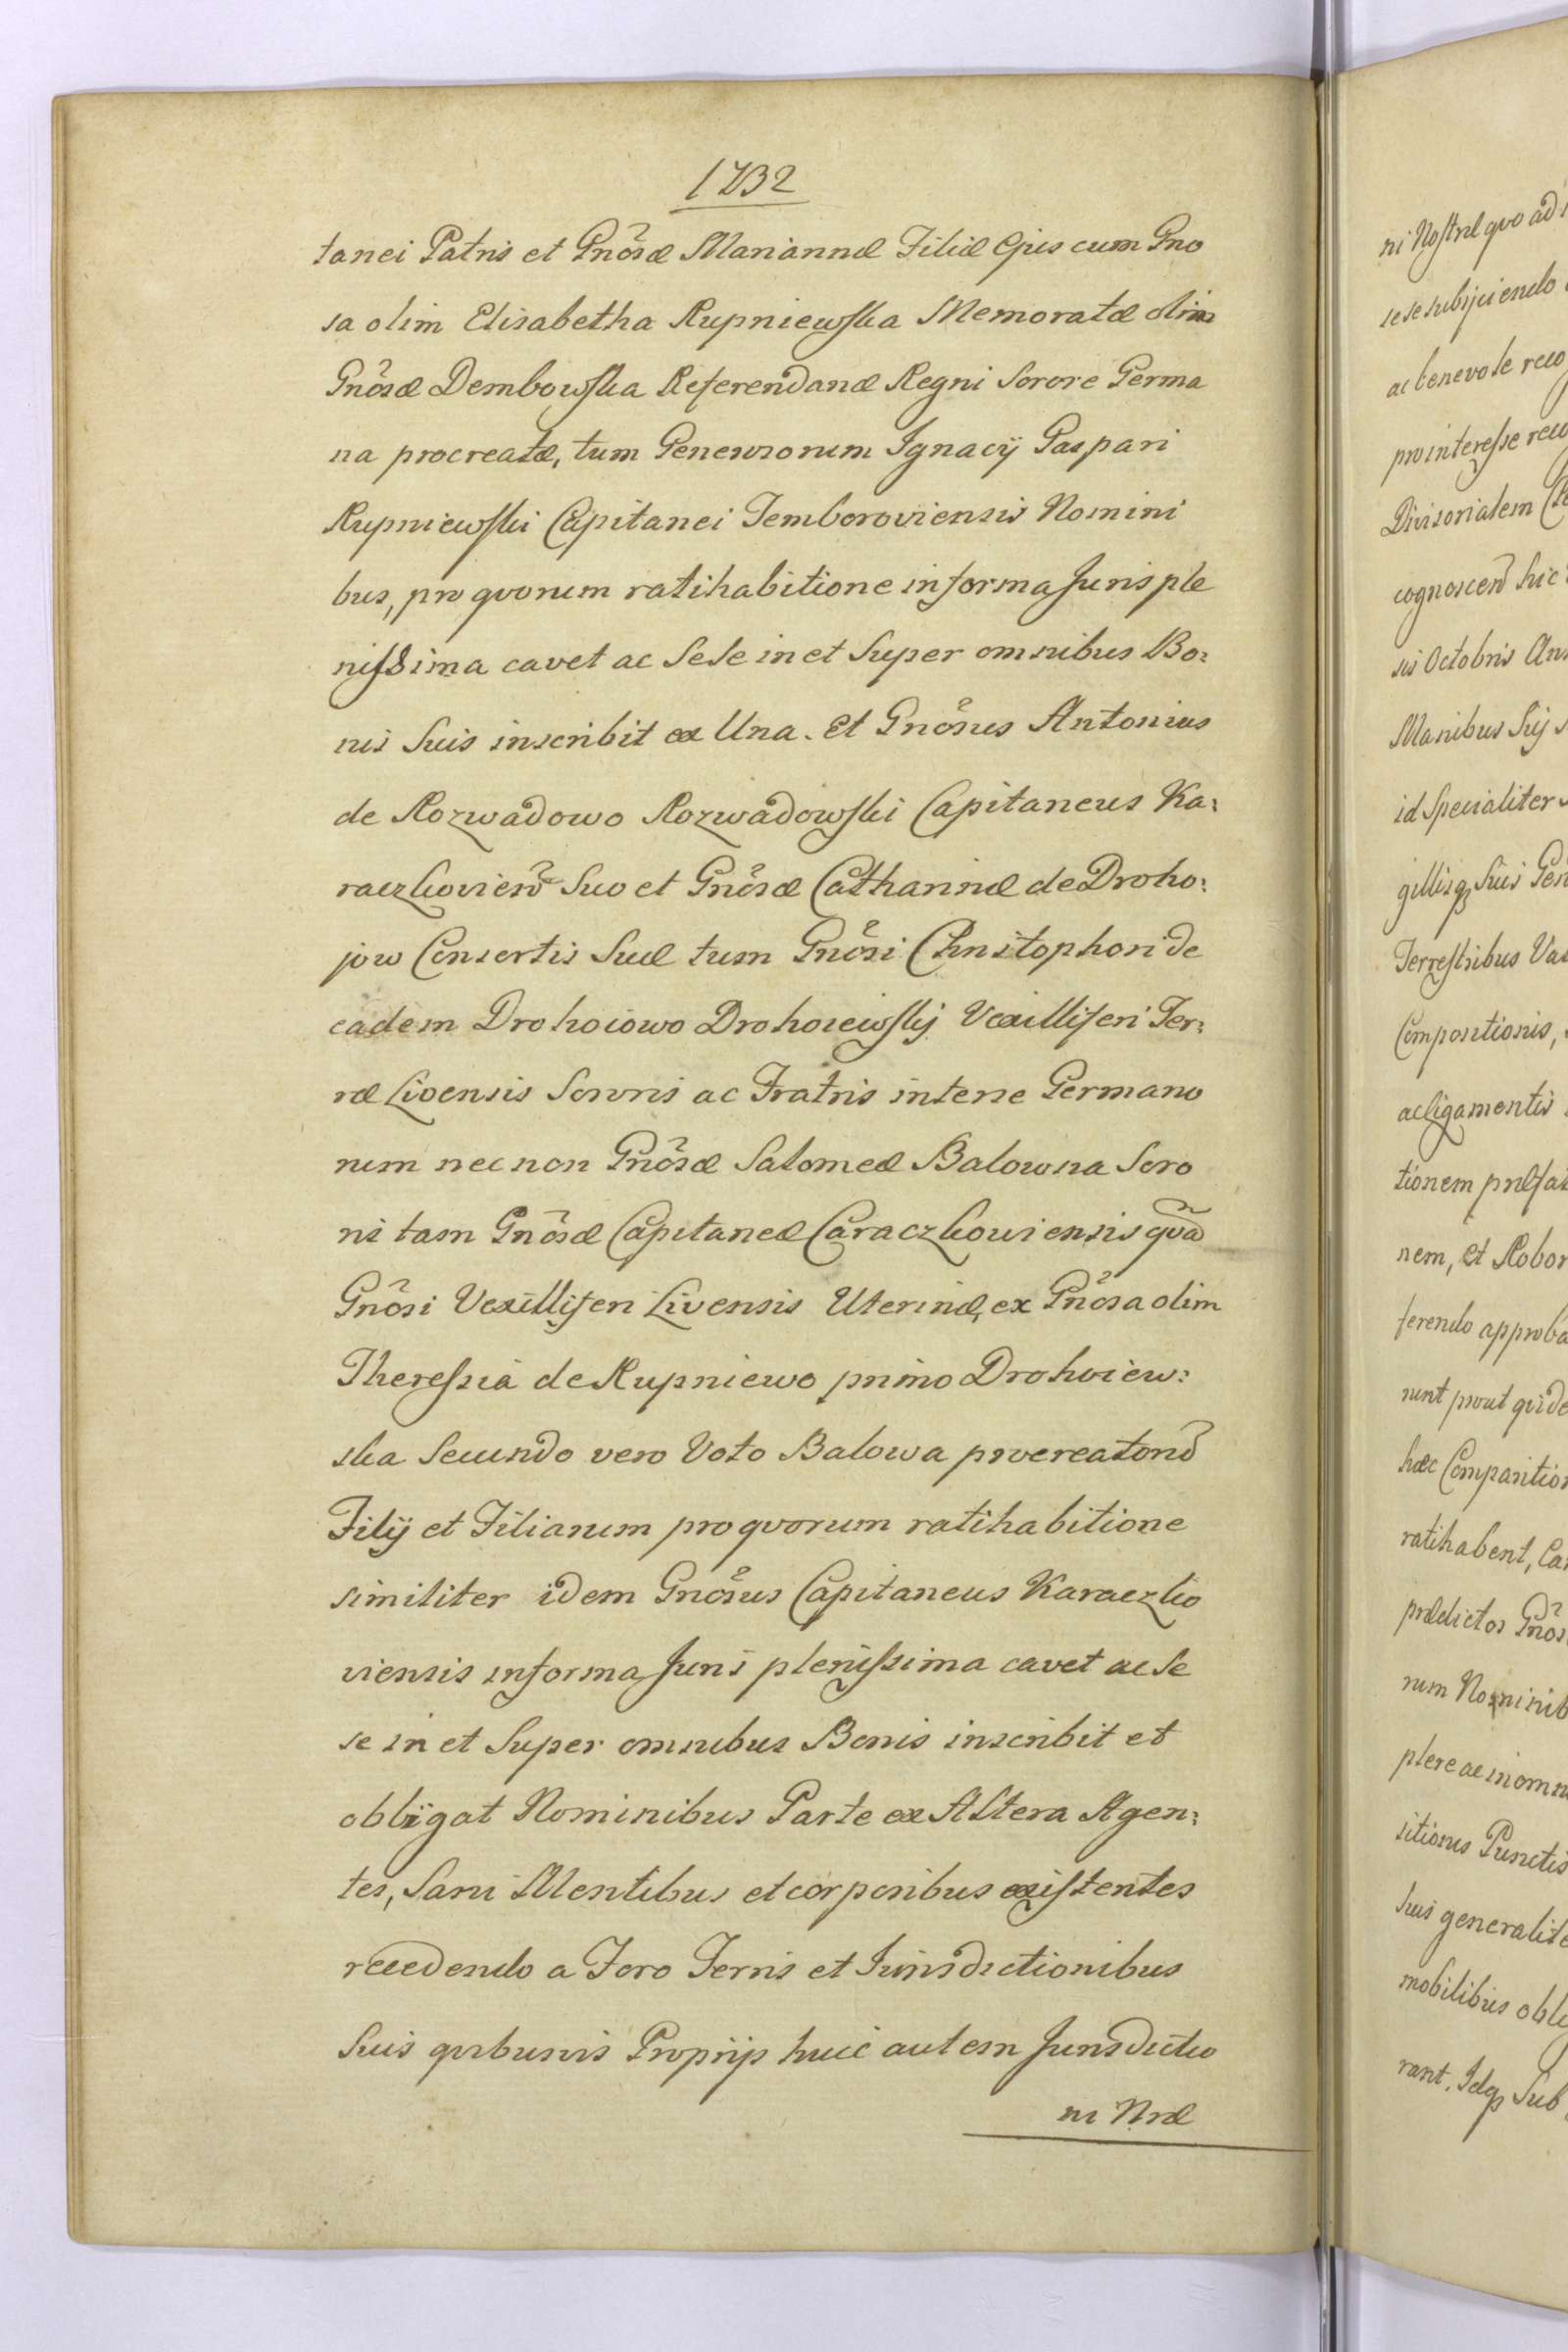 1732
tanei Patris et Gnôsæ Mariannæ Filiæ Ejus cum Gno
sa olim Elisabetha Rupniewska Memoratæ olim
Gnôsæ Dembowska Referendariæ Regni Sorore Germa
na procreatæ, tum Generosorum Ignacÿ Gaspari
Rupniewski Capitanei Temboroviensis Nomini
bus, pro qvorum ratihabitione in forma Juris ple
nissima cavet ac Sese in et Super omnibus Bo:
nis Suis inscribit ex Una. Et Gnôsus Antonius
de Rozwadowo Rozwadowski Capitaneus Ka:
raczkovien̄ Suo et Gnôsæ Catharinæ de Droho:
jow Consortis Suæ tum Gnôsi Christophori de
eadem Drohoiowo Drohoiewskij Vexilliferi Ter:
ræ Livensis Sororis ac Fratris interse Germano
rum nec non Gnôsæ Salomeæ Balowna Soro
ris tam Gnôsæ Capitaneæ Caraczkoviensis qvã
Gnôsi Vexilliferi Livensis Uterinæ, ex Gnôsa olim
Theressia de Rupniewo primo Drohoiew:
ska Secundo vero Voto Balowa procreatorũ
Filÿ et Filiarum pro qvorum ratihabitione
similiter idem Gnôsus Capitaneus Karaczko
viensis in forma Juris plenissima cavet ac Se
se in et Super omnibus Bonis inscribit et
obligat Nominibus Parte ex Altera Agen:
tes, Sani Mentibus et corporibus existentes
recedendo a Foro Terris et Jurisdictionibus
Suis qvibusvis Proprijs huic autem Jurisdictio
ni Nræ
ni Nostræ qvo ad
sese subijciendo
ac benevole reco
pro interesse reco
Divisorialem
cognoscen̄ hic
sis Octobris An
Manibus Sùj
id Specialiter
gillisq Suis Gen
Terrestribus Va
Compositionis,
ac ligamentis
tionem præfat
nem, et Robor
ferendo approba
runt prout qvide
hæc Comparitio
ratihabent, Ca
prædictos Gnôs
rum Nominib
plere ac in omn
sitionis Punctis
Suis generalite
mobilibus obli
rant. Idq Sub